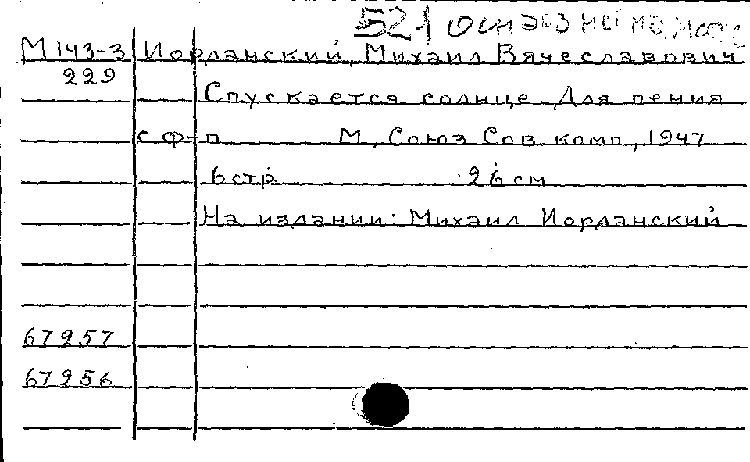 521 осн экз не на месте
М143-3 Иорданский, Михаил Вячеславович
229
Спускается солнце Для пения
с ф-п М., Союз Сов комп, 1947
6 стр 26 см
На издании: Михаил Иорданский
67957
67956